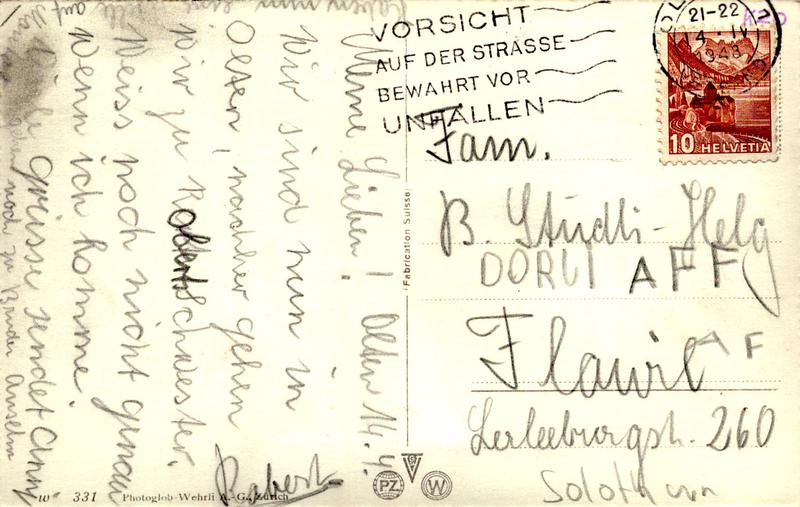 Meine Lieben! Olten 14.4.
Wir sind nun in
Olten, nachher gehen
wir zu Robertschwester.
Weiss noch nicht genau
wenn ich komme.
Viele Grüsse sendet Anny
gehen noch zu Bruder Anselm
Robert
VORSICHT
AUF DER STRASSE
BEWAHRT VOR
UNFÄLLEN
21-22
14. IV
1948
10 HELVETIA
Fam.
B. Studli-Helg
DORLI AFF
Flawil AF
260
Solothurn
Fabrication Suisse
PZ W
w 331 Photoglob-Wehrli A.-G., Zürich